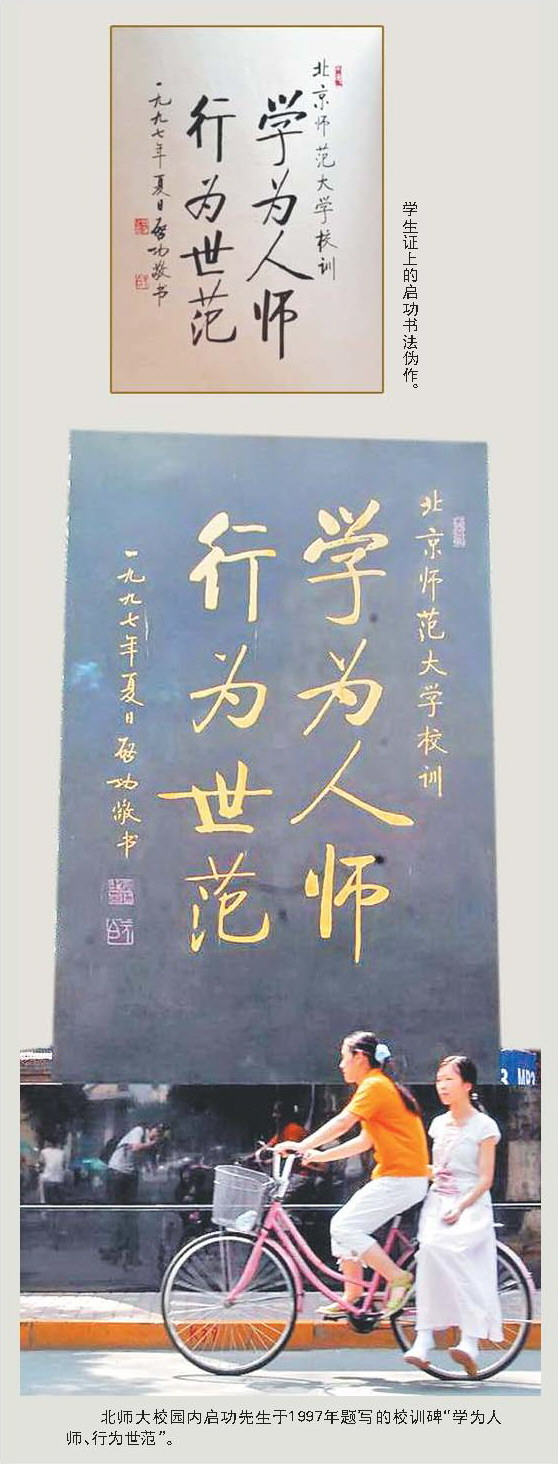 北京师范大学校训
学为人师
行为世范
一九九七年夏日启功敬书
学生证上的启功书法伪作。
北京师范大学校训
学为人师
行为世范
一九九七年夏日启功敬书
北师大校园内启功先生于1997年题写的校训碑“学为人
师、行为世范”。